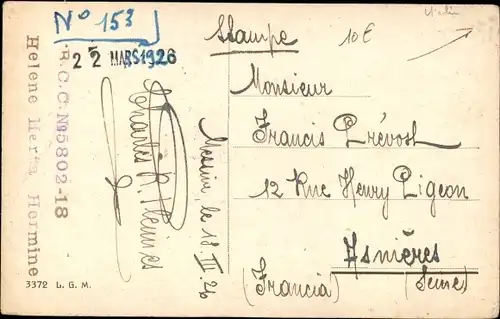 Nº 153
22 MARS 1926
B.C.C. Nº 5802-18
Helene Herta Hermine
3372 L. G. M.
Charles R.
le 18 III 26
Stampe
10€
Monsieur
Francis Prévost
12 Rue Henry Pigeon
Asnières
(Francia) (Seine)